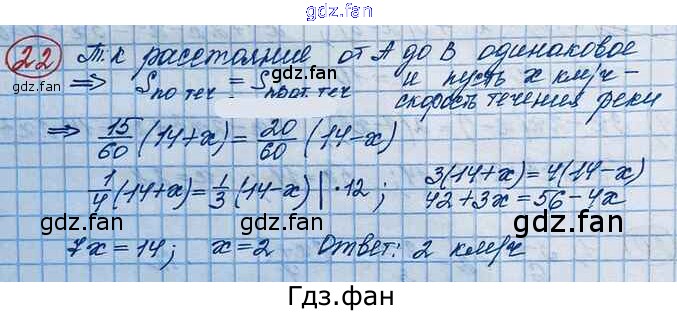 gdz.fan
22 Т.к расстояние от А до В одинаковое
gdz.fan gdz.fan
⇒ S по теч = S против теч и пусть x км/ч -
скорость течения реки
⇒ 15/60 (14+x) = 20/60 (14-x)
1/4 (14+x) = 1/3 (14-x) | ·12 ; 3(14+x) = 4(14-x)
42 + 3x = 56 - 4x
gdz.fan gdz.fan gdz.fan
7x = 14; x = 2 Ответ: 2 км/ч
Гдз.фан